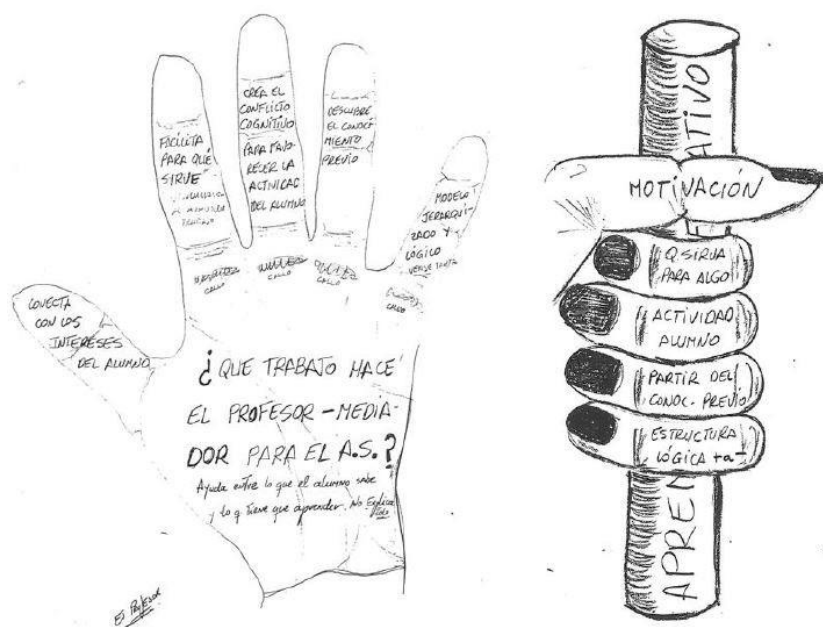 CONECTA
CON LOS
INTERESES
DEL ALUMNO
FACILITA
PARA QUÉ
SIRVE
CREA EL
CONFLICTO
COGNITIVO
PARA FAVO-
RECER LA
ACTIVIDAD
DEL ALUMNO
DESCUBRE
EL CONOCI-
MIENTO
PREVIO
MODELO
JERARQUI-
ZADO Y
LÓGICO
CALLO
CALLO
CALLO
CALLO
¿QUE TRABAJO HACE
EL PROFESOR-MEDIA-
DOR PARA EL A.S.?
Ayuda entre lo que el alumno sabe
y lo q tiene que aprender. No Explica
Todo
El Profesor
ATIVO
MOTIVACIÓN
Q SIRVA
PARA ALGO
ACTIVIDAD
ALUMNO
PARTIR DEL
CONOC. PREVIO
ESTRUCTURA
LÓGICA +a-
APREN